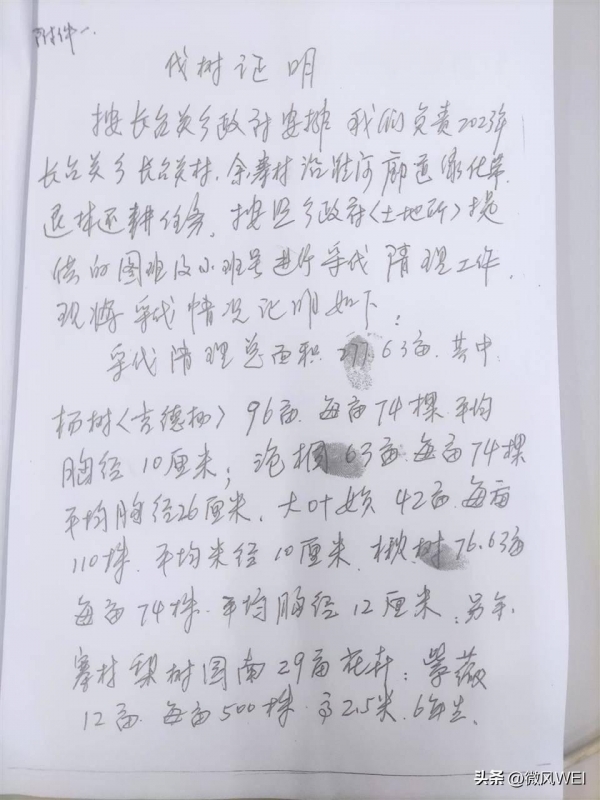 附件一.
伐树证明
按长台关乡政府安排 我们负责2023年
长台关乡长台关村、余寨村沿淮河廊道绿化带
退林还耕任务, 按照乡政府(土地所)提
供的图班及小班号进行采伐清理工作,
现将采伐情况证明如下:
采伐清理总面积277.63亩. 其中:
杨树(吉德杨)96亩.每亩74棵.平均
胸径10厘米;泡桐63亩.每亩74棵
平均胸径26厘米、大叶女贞42亩.每亩
110株.平均米径10厘米.楸树76.63亩
每亩74株.平均胸径12厘米、另余
寨村梨树园南29亩花卉:紫薇
12亩.每亩500株.高2.5米.6年生、
头条 @微风WEI